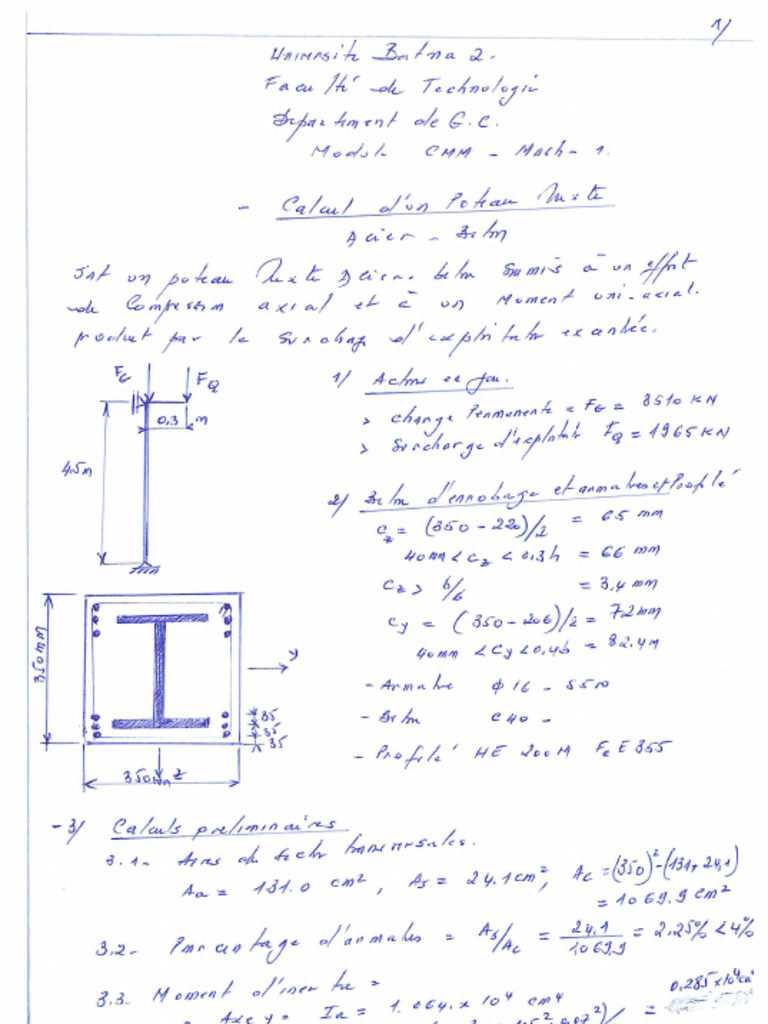 1/
Université Batna 2.
Faculté de Technologie
Département de G.C.
Module CMM - Mast- 1.
- Calcul d'un Poteau Mixte
Acier - Béton
Soit un poteau Mixte Acier- béton Soumis à un effort
de Compression axial et à un Moment uni-axial.
produit par la Surcharge d'exploitation excentrée.
FG
FQ
0,3 m
4.5m
1/ Actions en jeu.
> Charge Permanente = FG = 3510 KN
> Surcharge d'exploitation FQ = 1965 KN
2/ Béton d'enrobage et armatures et Profilé
cz = (350 - 220)/2 = 65 mm
40mm < cz < 0.3h = 66 mm
cz > b/6 = 3,4 mm
cy = (350 - 206)/2 = 72mm
40mm < cy < 0,4b = 82.4m
- Armature ϕ16 - S500
- Béton C40 -
- Profilé HE 200M FeE355
350mm
y
35
35
35
350mm
z
-3/ Calculs preliminaires
3.1- Aires de Section transversales.
Aa = 131.0 cm², As = 24.1cm², Ac = (350)² - (131+24,1)
= 1069.9 cm²
3.2- Pourcentage d'armatures = As/Ac = 24.1/1069.9 = 2.25% < 4%
3.3- Moment d'inertie =
Axe y = Ia = 1.064.x10⁴ cm⁴
= 0,285x10⁴cm⁴